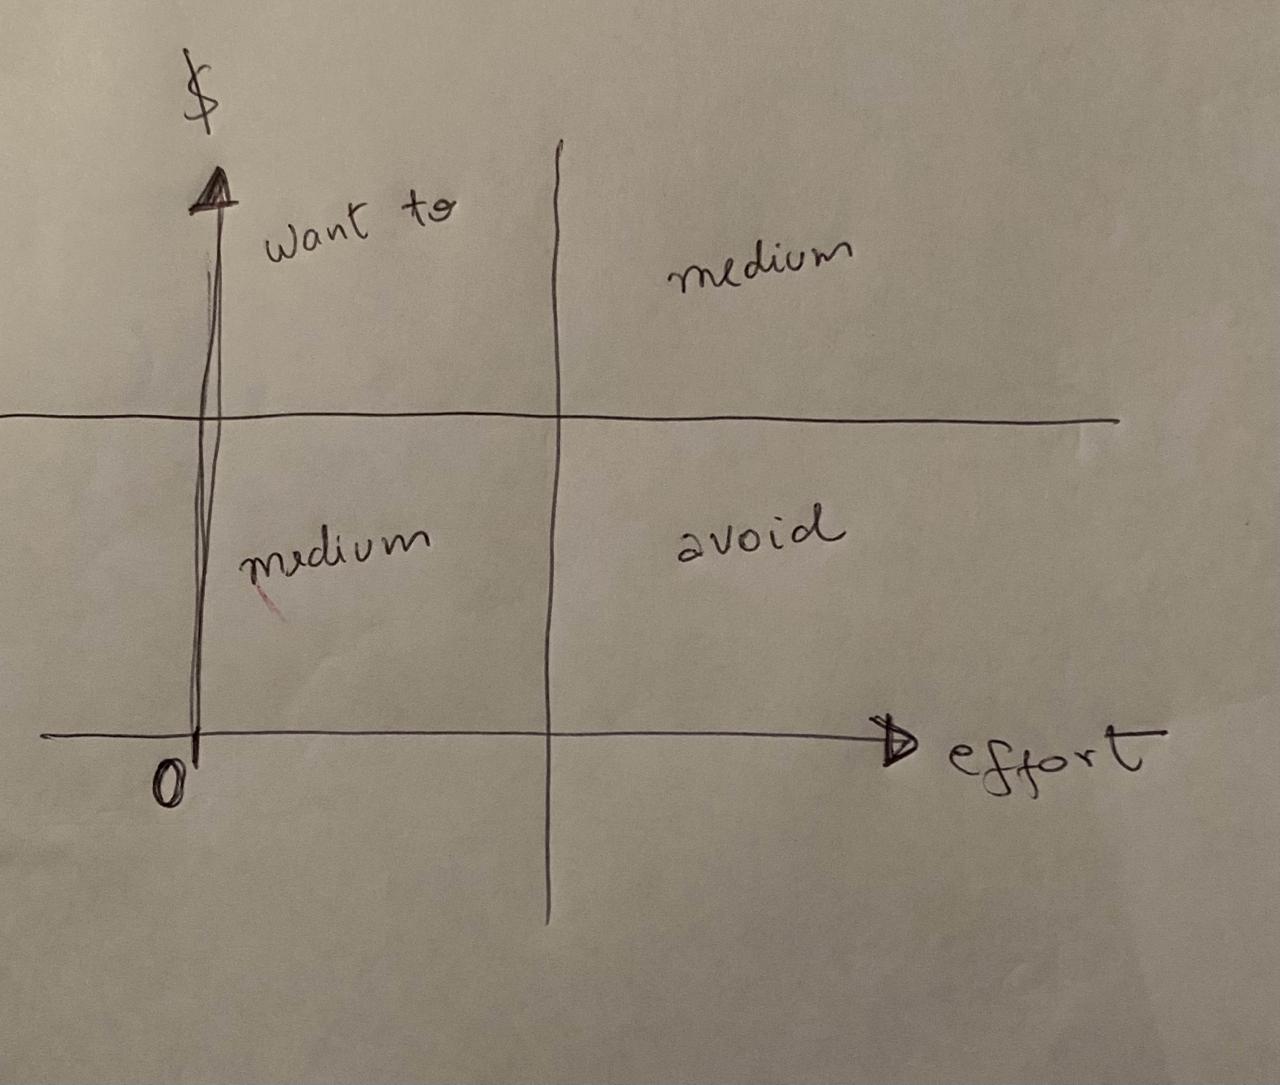 $
want to
medium
medium
avoid
0
effort